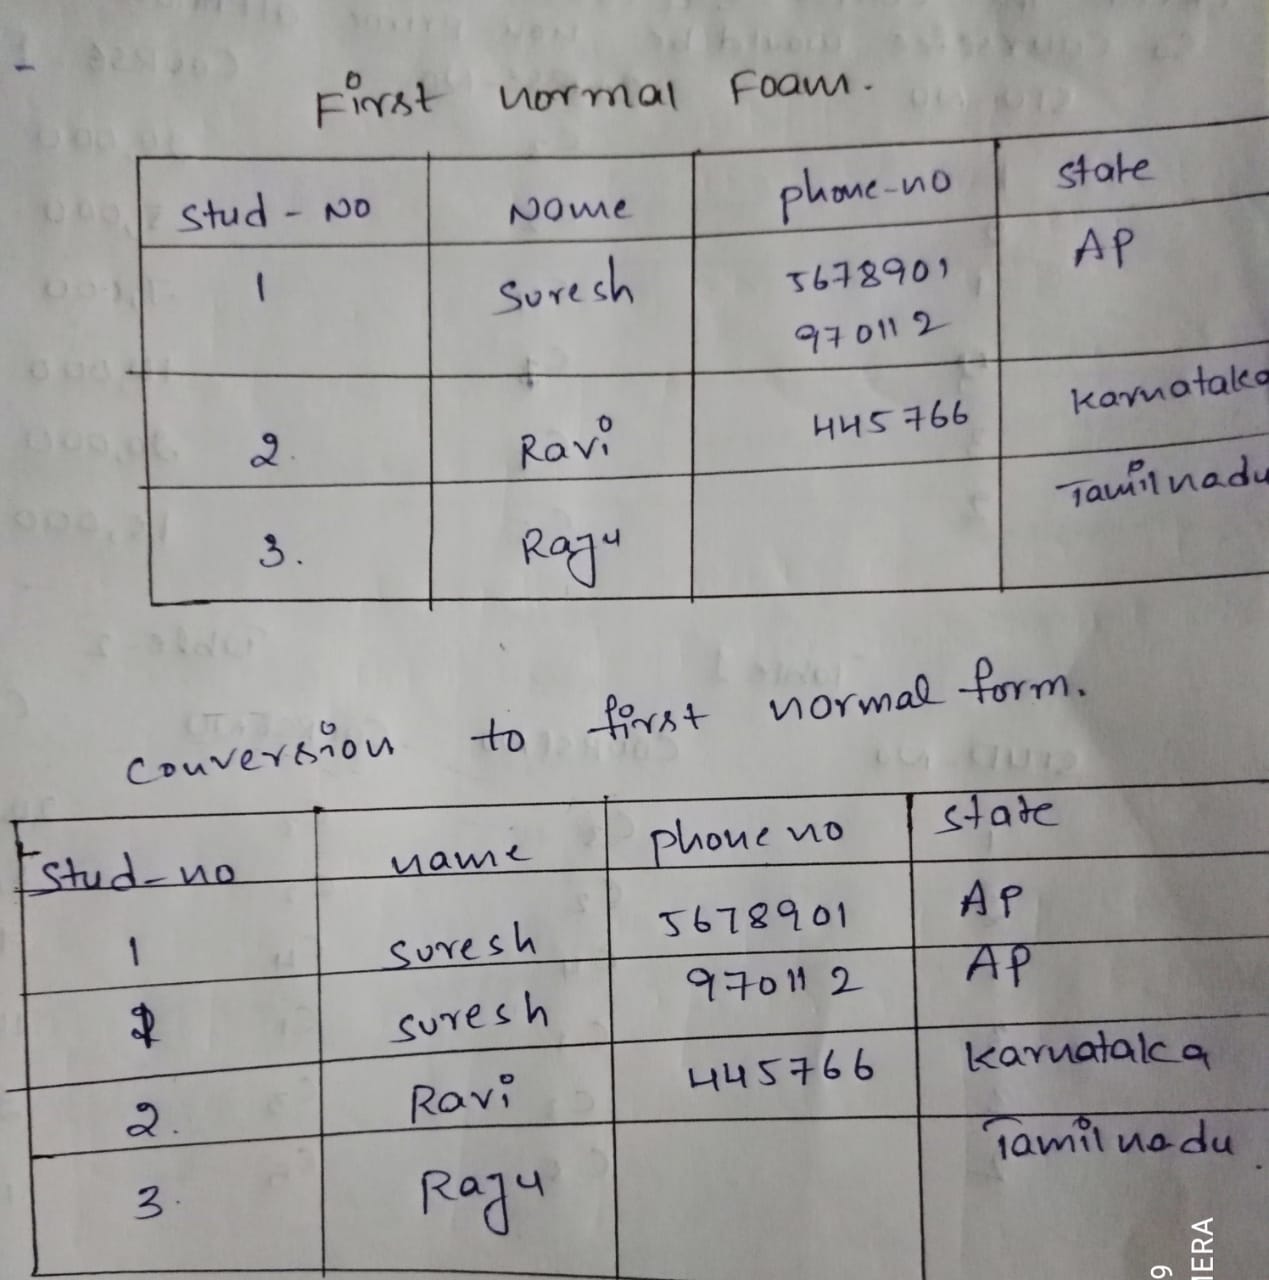 First normal Foam.
Stud - No Name phone-no state
1 Suresh 5678901 AP
970112
2. Ravi 445766 Karnataka
3. Raju Tamilnadu
Conversion to first normal form.
Stud-no name phone no state
1 Suresh 5678901 AP
1 Suresh 970112 AP
2. Ravi 445766 Karnataka
3. Raju Tamilnadu